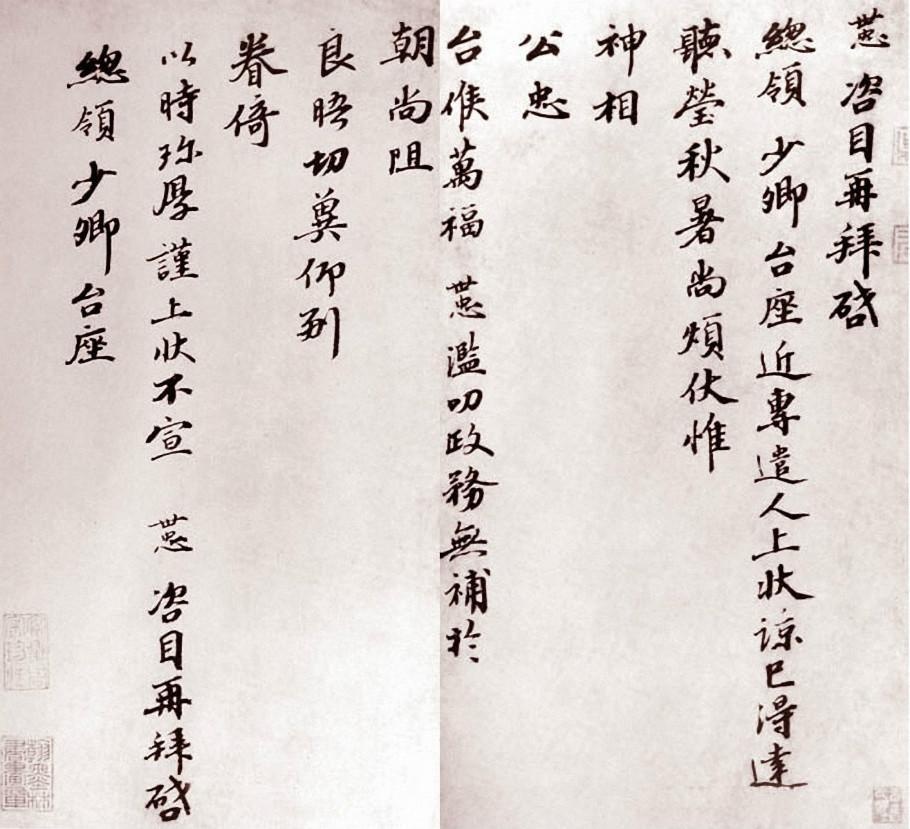 咨目再拜啓
總領 少卿台座近專遣人上狀諒已得達
聽瑩秋暑尚煩伏惟
神相
公忠
台候萬福 濫叨政務無補於
朝尚阻
良晤切冀仰副
眷倚
以時珎厚謹上狀不宣 咨目再拜啓
總領少卿台座